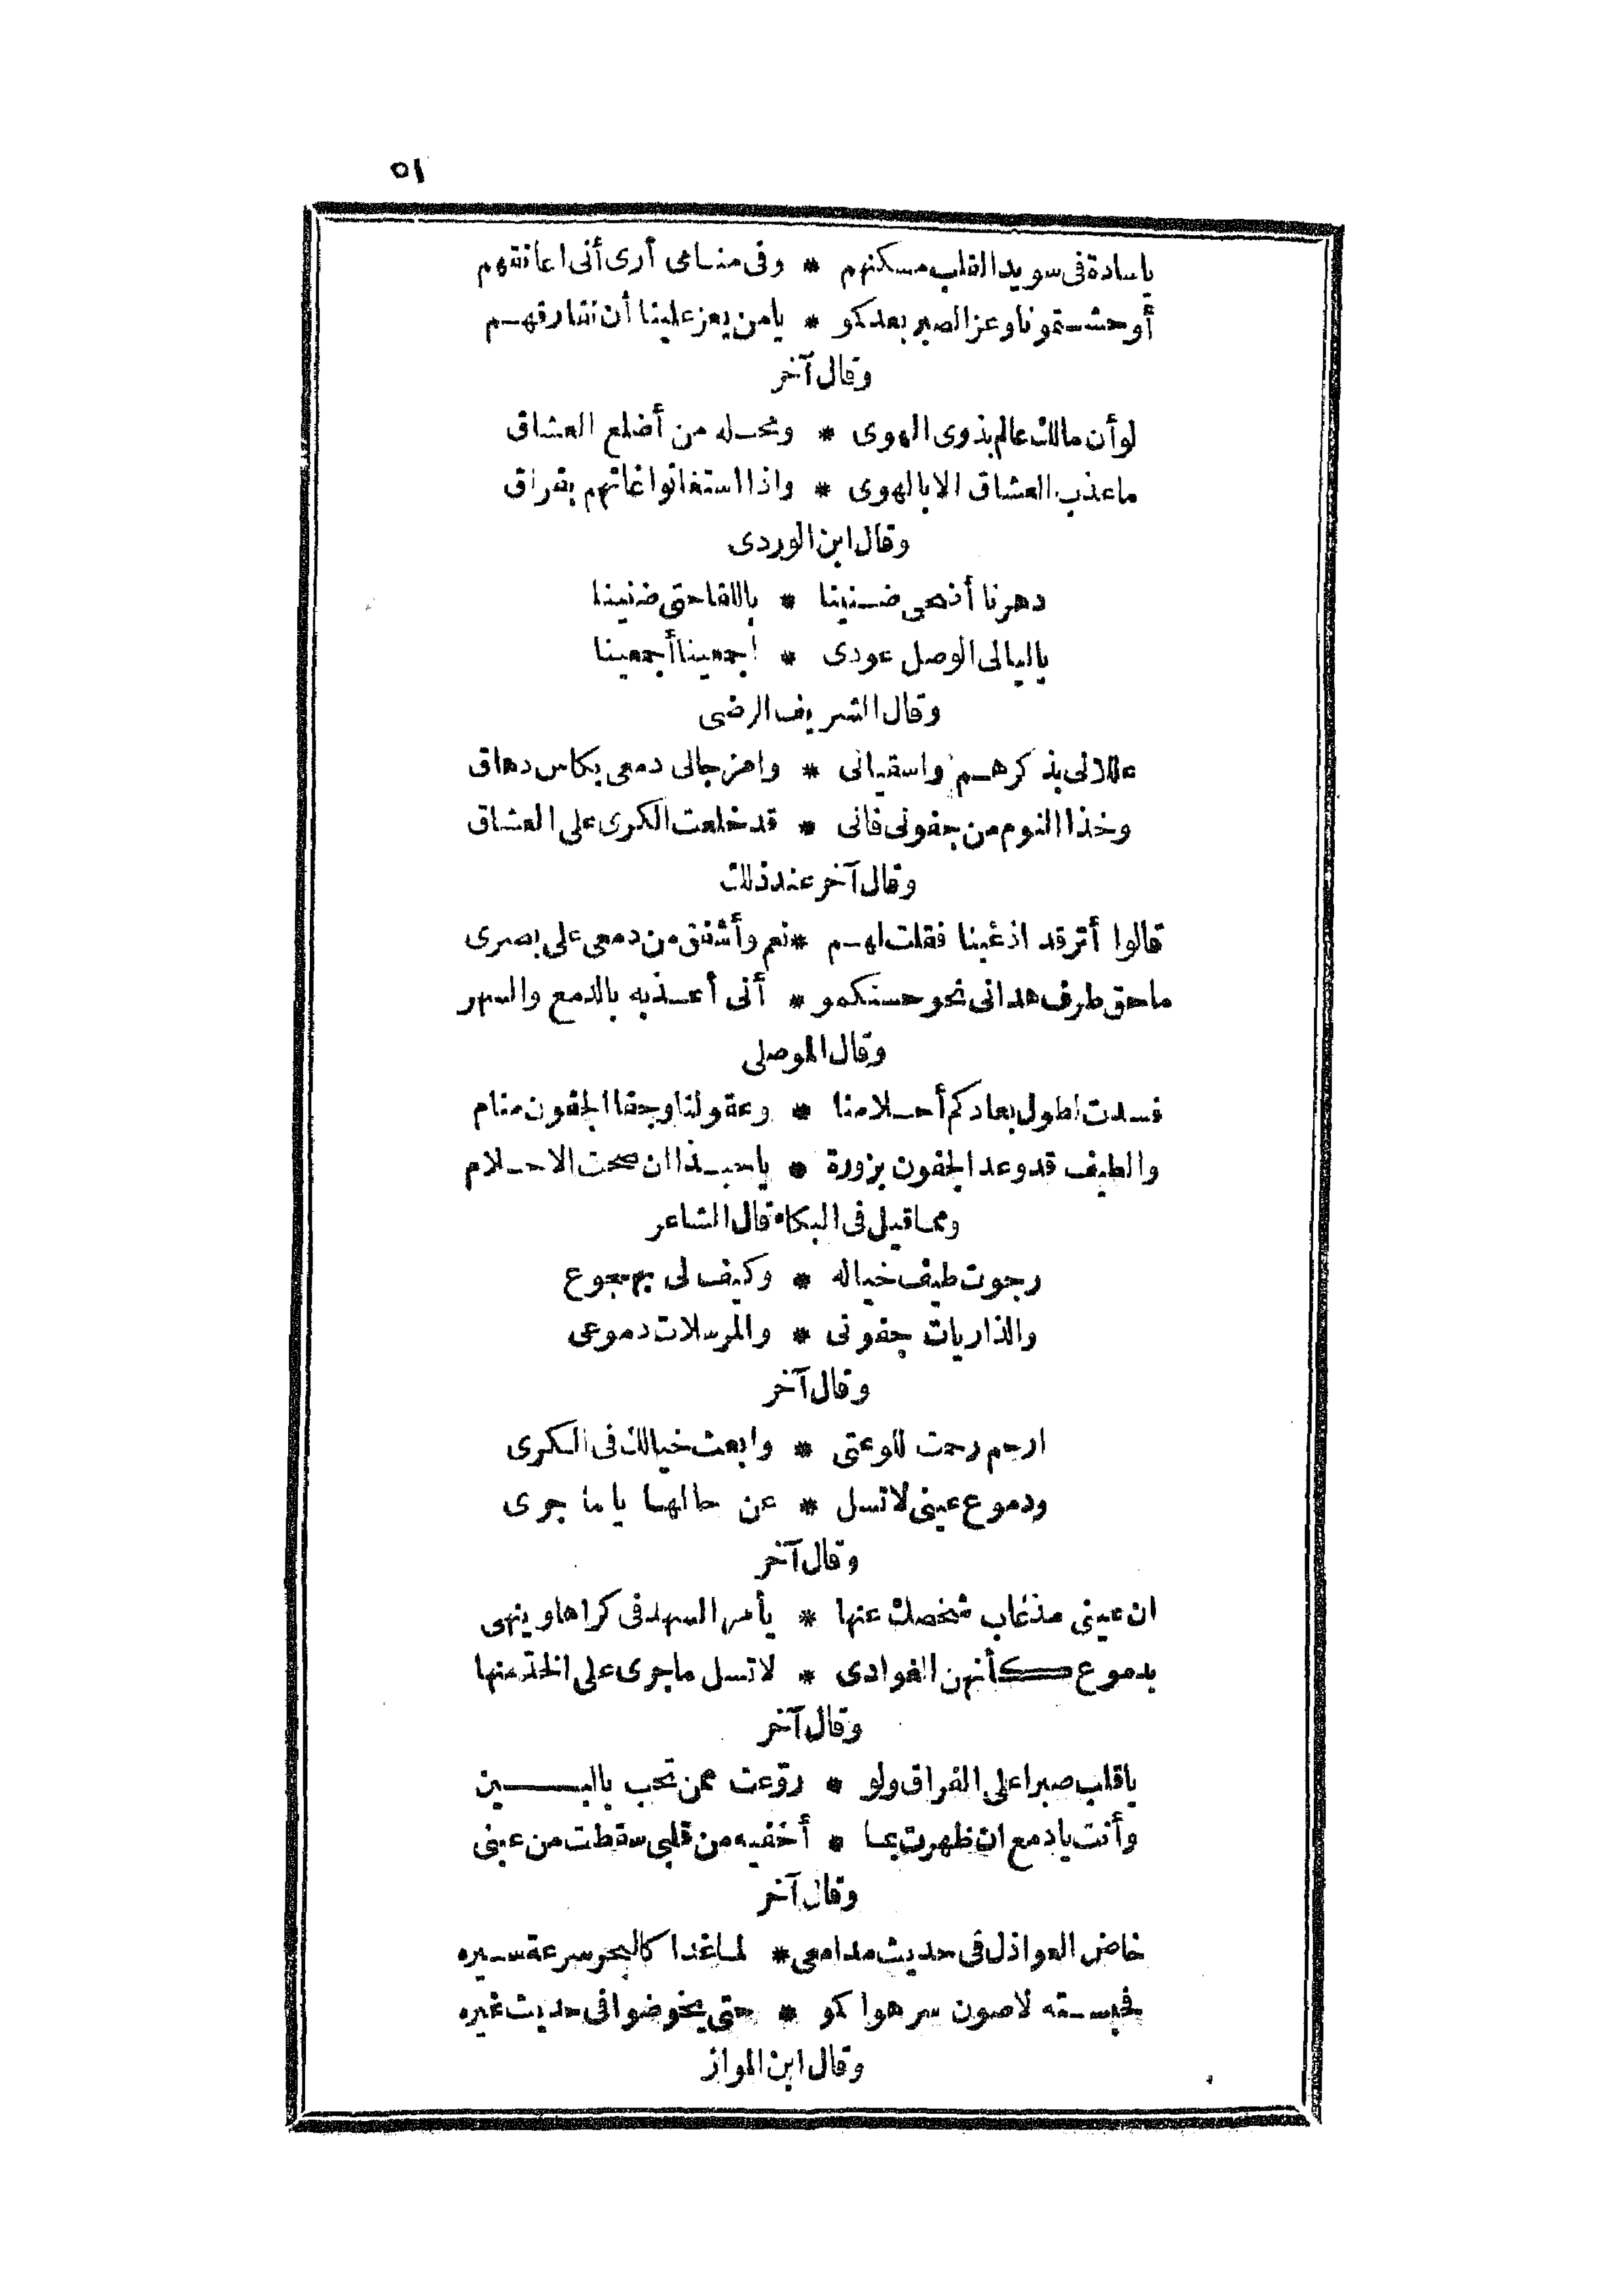 ٥١
ياسادة في سويدا القلب مسكنهم * وفي منامى أرى أنى اعانقهم
أوحشتمونا وعز الصبر بعدكمو * يامن يعز علينا أن نفارقهم
وقال آخر
لو أن مالك عالم بذوى الهوى * ومحله من أضلع العشاق
ماعذب العشاق الا بالهوى * واذا استغاثوا غاثهم بفراق
وقال ابن الوردى
دهرنا أضحى ضنينا * باللقا حتى ضنينا
ياليالى الوصل عودى * اجمعينا أجمعينا
وقال الشريف الرضى
عللانى بذكرهم واسقيانى * وامزجالى دمعى بكاس دهاق
وخذا النوم من جفونى فانى * قد خلعت الكرى على العشاق
وقال آخر عند ذلك
قالوا أترقد اذ غبنا فقلت لهم * نعم وأشفق من دمعى على بصرى
ماحق طرف هدانى نحو حسنكمو * أنى أعذبه بالدمع والسهر
وقال الموصلى
فسدت لطول بعادكم أحلامنا * وعقولنا وجفا الجفون منام
والطيف قد وعد الجفون بزورة * ياحبذا ان صحت الاحلام
ومما قيل في البكاء قال الشاعر
رجوت طيف خياله * وكيف لى بهجوع
والذاريات جفونى * والمرسلات دموعى
وقال آخر
ارحم رحمت للوعتى * وابعث خيالك في الكرى
ودموع عينى لاتسل * عن حالها ياما جرى
وقال آخر
ان عينى مذ غاب شخصك عنها * يأمر السهد في كراها وينهى
بدموع كأنهن الغوادى * لاتسل ماجرى على الخد منها
وقال آخر
ياقلب صبرا على الفراق ولو * روّعت ممن تحب بالبين
وأنت يادمع ان ظهرت بما * أخفيه من قلبى سقطت من عينى
وقال آخر
خاض العواذل في حديث مدامعى * لما غدا كالبحر سرعة سيره
فحبسته لاصون سر هواكمو * حتى يخوضوا فى حديث غيره
وقال ابن المواز